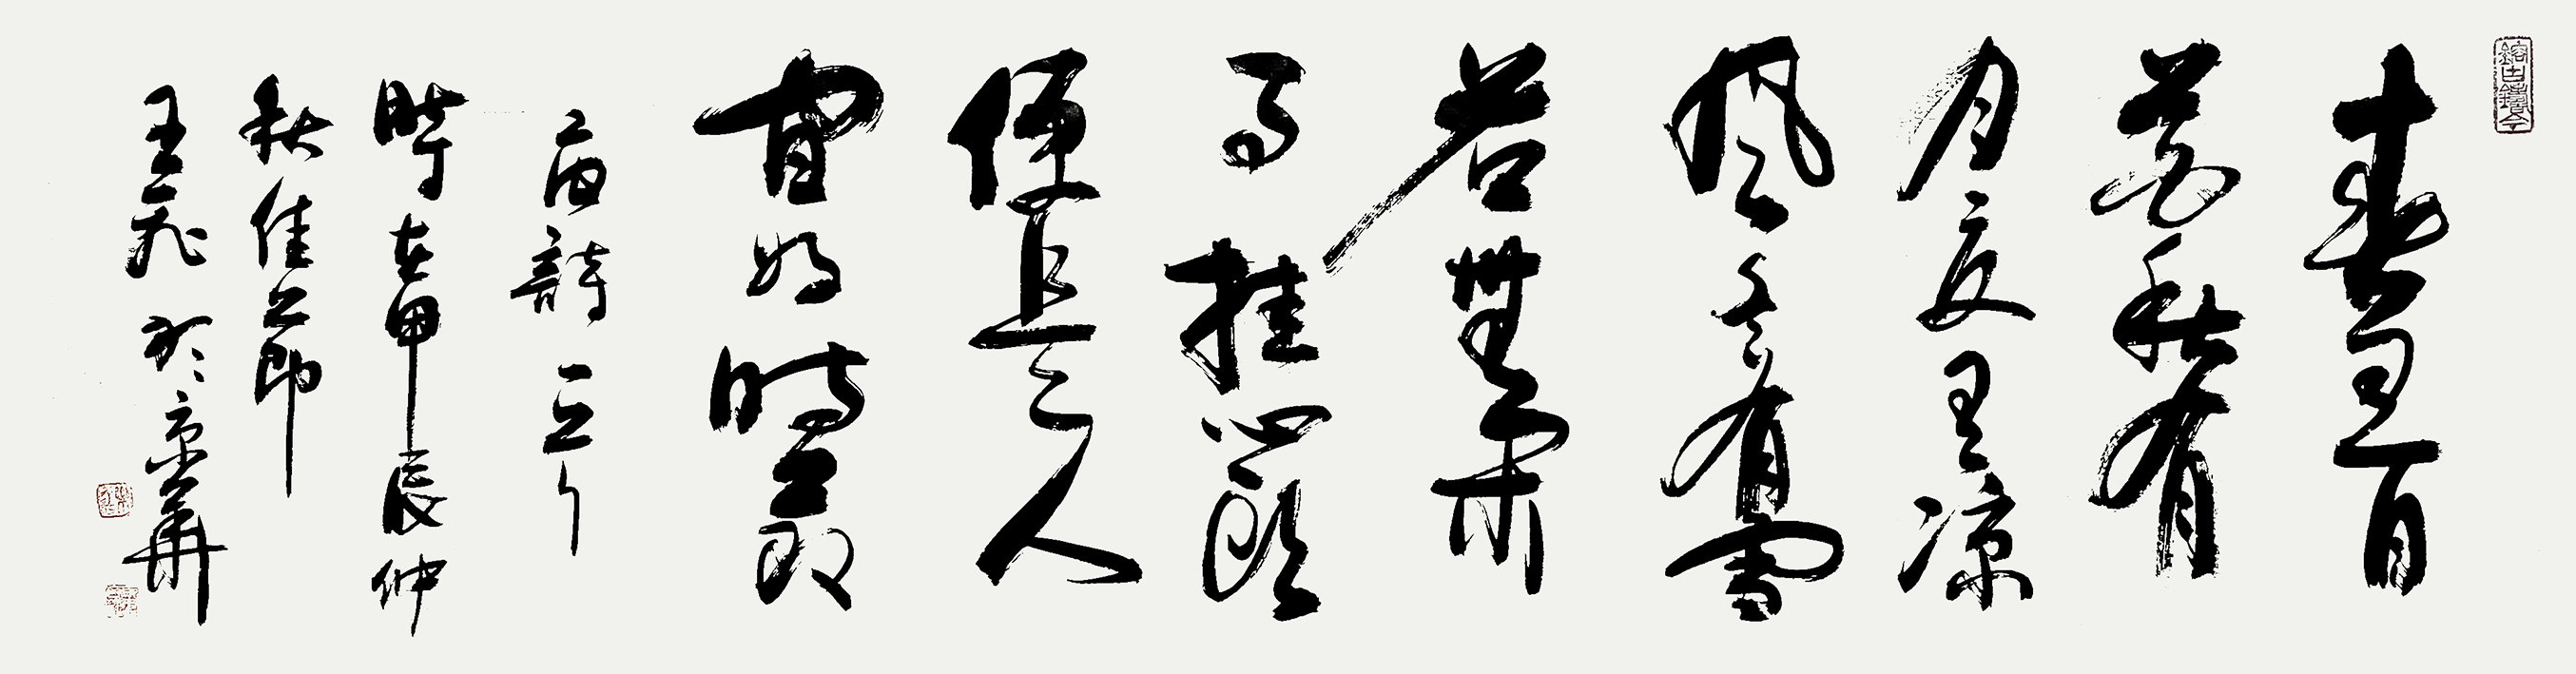 鎔古鑄今
春有百
花秋有
月夏有凉
風冬有雪
若無閑
事挂心頭
便是人
間好時節
詩
時在甲辰仲
秋佳節
王飛於京華